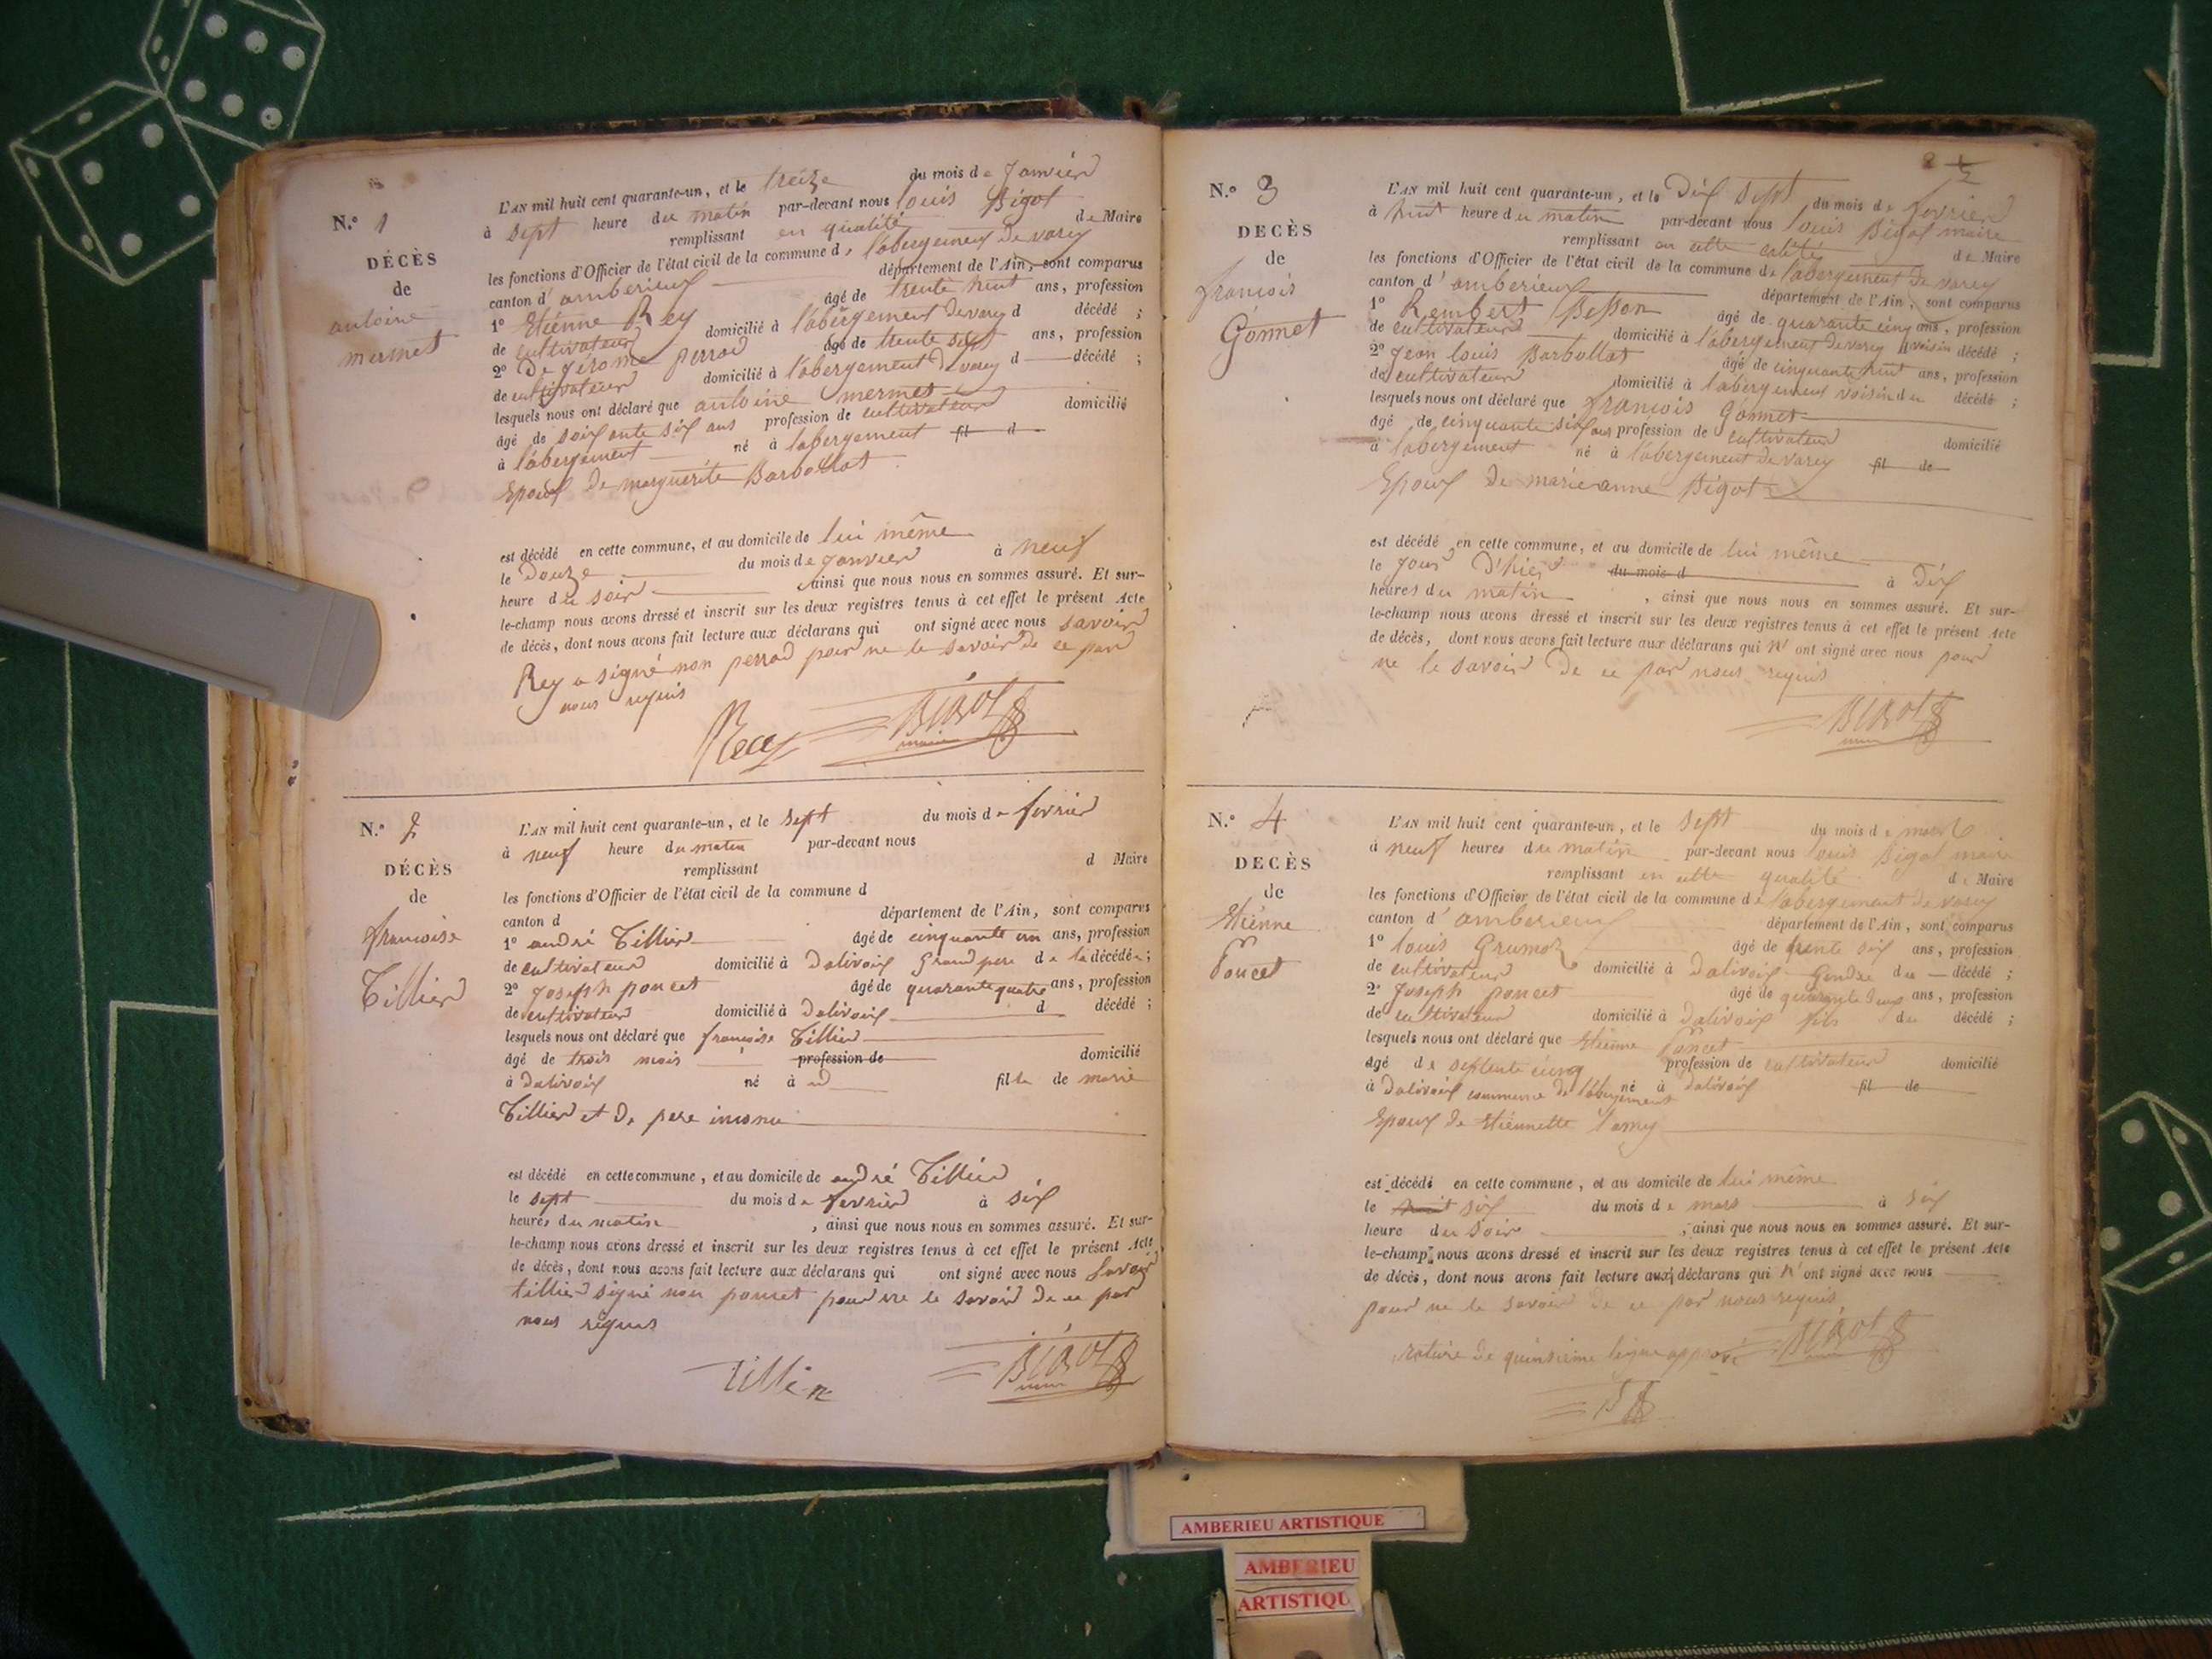 N.° 1
DÉCÈS
de
antoine
mermet
L'AN mil huit cent quarante-un, et le treize du mois de Janvier
à sept heure du matin par-devant nous louis Bigot
remplissant en qualité de Maire
les fonctions d'Officier de l'état civil de la commune de l'abergement de varey
canton d'amberieux département de l'Ain, sont comparus
1° Etiénne Rey âgé de trente huit ans, profession
de cultivateur domicilié à l'abergement de varey d décédé ;
2° De jérome perrod âgé de trente sept ans, profession
de cultivateur domicilié à l'abergement de varey d décédé ;
lesquels nous ont déclaré que antoine mermet
âgé de soixante six ans profession de cultivateur domicilié
à l'abergement né à labergement fil d
Epoux de marguerite Barbollat
est décédé en cette commune, et au domicile de lui même
le Douze du mois de Janvier à neuf
heure du soir ainsi que nous nous en sommes assuré. Et sur-
le-champ nous avons dressé et inscrit sur les deux registres tenus à cet effet le présent Acte
de décès, dont nous avons fait lecture aux déclarans qui ont signé avec nous savoir
Rey a signé non perrod pour ne le savoir de ce par
nous requis
Rey BIGOT
maire
N.° 2
DÉCÈS
de
francoise
Tillier
L'AN mil huit cent quarante-un, et le sept du mois de fevrier
à neuf heure du matin par-devant nous
remplissant d Maire
les fonctions d'Officier de l'état civil de la commune d
canton d département de l'Ain, sont comparus
1° andré Tillier âgé de cinquante un ans, profession
de cultivateur domicilié à Dalivoix Grand pere de la décédée ;
2° Joseph poncet âgé de quarante quatre ans, profession
de cultivateur domicilié à Dalivoix d décédé ;
lesquels nous ont déclaré que francoise Tillier
âgé de trois mois profession de domicilié
à Dalivoix né à fille de marie
Tillier et de pere inconnu
est décédé en cette commune, et au domicile de andré Tillier
le sept du mois de fevrier à six
heures du matin, ainsi que nous nous en sommes assuré. Et sur-
le-champ nous avons dressé et inscrit sur les deux registres tenus à cet effet le présent Acte
de décès, dont nous avons fait lecture aux déclarans qui ont signé avec nous savoir
tillier signé non poncet pour ne le savoir de ce par
nous requis
Tillier BIGOT
maire
N.° 3
DECÈS
de
francois
Gonnet
L'AN mil huit cent quarante-un, et le Dix sept du mois de fevrier
à huit heure du matin par-devant nous louis Bigot maire
remplissant en cette calité de Maire
les fonctions d'Officier de l'état civil de la commune de l'abergement de varey
canton d'amberieux département de l'Ain, sont comparus
1° Rembert Besson âgé de quarante cinq ans, profession
de cultivateur domicilié à l'abergement de varey voisin décédé ;
2° Jean louis Barbollat âgé de cinquante huit ans, profession
de cultivateur domicilié à l'abergement voisin du décédé ;
lesquels nous ont déclaré que francois Gonnet
âgé de cinquante six ans profession de cultivateur domicilié
à l'abergement né à l'abergement de varey fil de
Epoux de marie anne Bigot
est décédé en cette commune, et au domicile de lui même
le jour D'hier du mois d à Dix
heures du matin, ainsi que nous nous en sommes assuré. Et sur-
le-champ nous avons dressé et inscrit sur les deux registres tenus à cet effet le présent Acte
de décès, dont nous avons fait lecture aux déclarans qui n' ont signé avec nous pour
ne le savoir de ce par nous requis
BIGOT
maire
N.° 4
DECÈS
de
Etiénne
Poncet
L'AN mil huit cent quarante-un, et le sept du mois de mars
à neuf heures du matin par-devant nous louis Bigot maire
remplissant en cette qualité de Maire
les fonctions d'Officier de l'état civil de la commune de l'abergement de varey
canton d'amberieux département de l'Ain, sont comparus
1° louis Grumoz âgé de trente six ans, profession
de cultivateur domicilié à Dalivoix Gendre du décédé ;
2° Joseph poncet âgé de quarante deux ans, profession
de cultivateur domicilié à Dalivoix fils du décédé ;
lesquels nous ont déclaré que Etienne Poncet
âgé de septente cinq profession de cultivateur domicilié
à Dalivoix commune de l'abergement né à dalivoix fil de
Epoux de Etiénnette
est décédé en cette commune, et au domicile de lui même
le huit six du mois de mars à six
heure du soir, ainsi que nous nous en sommes assuré. Et sur-
le-champ nous avons dressé et inscrit sur les deux registres tenus à cet effet le présent Acte
de décès, dont nous avons fait lecture aux déclarans qui n'ont signé avec nous
pour ne le savoir de ce par nous requis
rature de quinsieme ligne apprové BIGOT
AMBERIEU ARTISTIQUE
AMBERIEU
ARTISTIQU